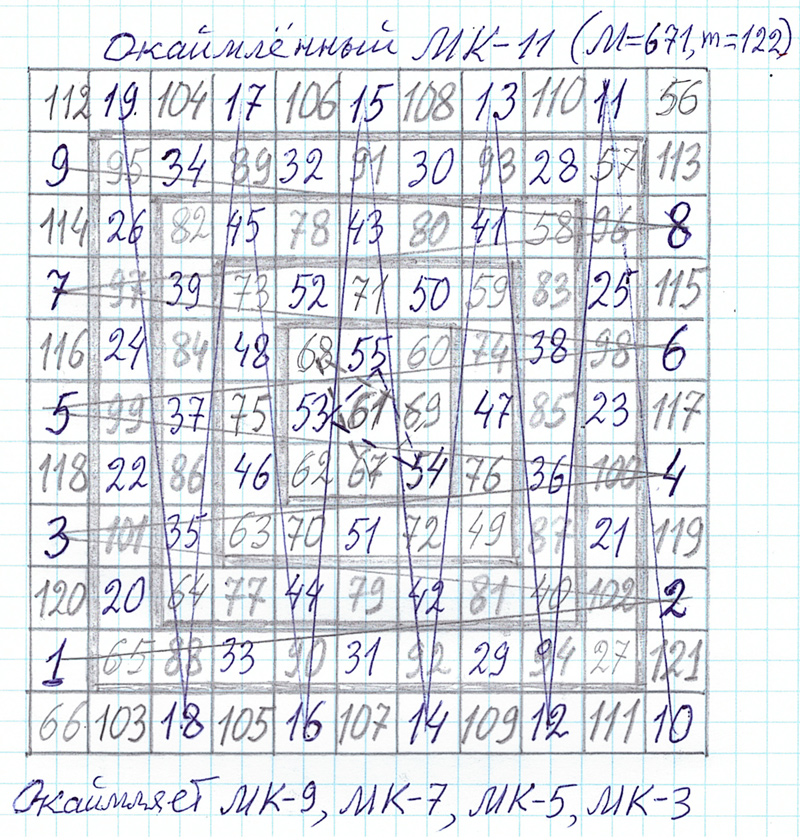 Окаймлённый МК-11 (M=671, m=122)
112 19 104 17 106 15 108 13 110 11 56
9 95 34 89 32 91 30 93 28 57 113
114 26 82 45 78 43 80 41 58 96 8
7 97 39 73 52 71 50 59 83 25 115
116 24 84 48 68 55 60 74 38 98 6
5 99 37 75 53 61 69 47 85 23 117
118 22 86 46 62 67 54 76 36 100 4
3 101 35 63 70 51 72 49 87 21 119
120 20 64 77 44 79 42 81 40 102 2
1 65 88 33 90 31 92 29 94 27 121
66 103 18 105 16 107 14 109 12 111 10
Окаймляет МК-9, МК-7, МК-5, МК-3